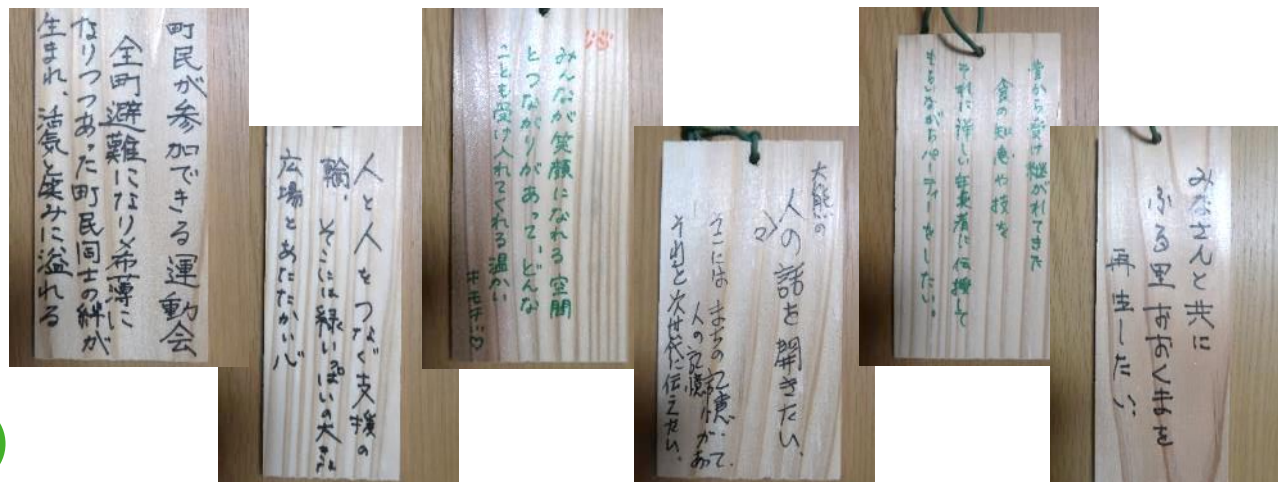 町民が参加できる運動会
全町避難になり希薄に
なりつつあった町民同士の絆が
生まれ、活気と笑みに溢れる
人と人をつなぐ支援の
輪、そこには緑いっぱいの大きな
広場とあたたかい心
みんなが笑顔になれる空間
とつながりがあって、どんな
ことも受け入れてくれる温かい
キモチ♡
大熊の
人の話を聞きたい、
そこにはまちの記憶、
人の記憶があって、
それを次世代に伝えたい。
昔から受け継がれてきた
食の知恵や技を
それに詳しい年長者に伝授して
もらいながらパーティーをしたい。
みなさんと共に
ふる里おおくまを
再生したい。